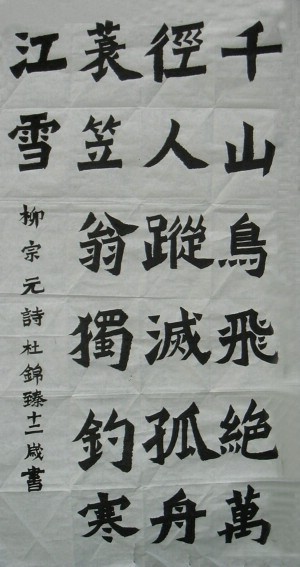 千山鳥飛絕萬
徑人蹤滅孤舟
蓑笠翁獨釣寒
江雪
柳宗元詩杜錦臻十二歲書